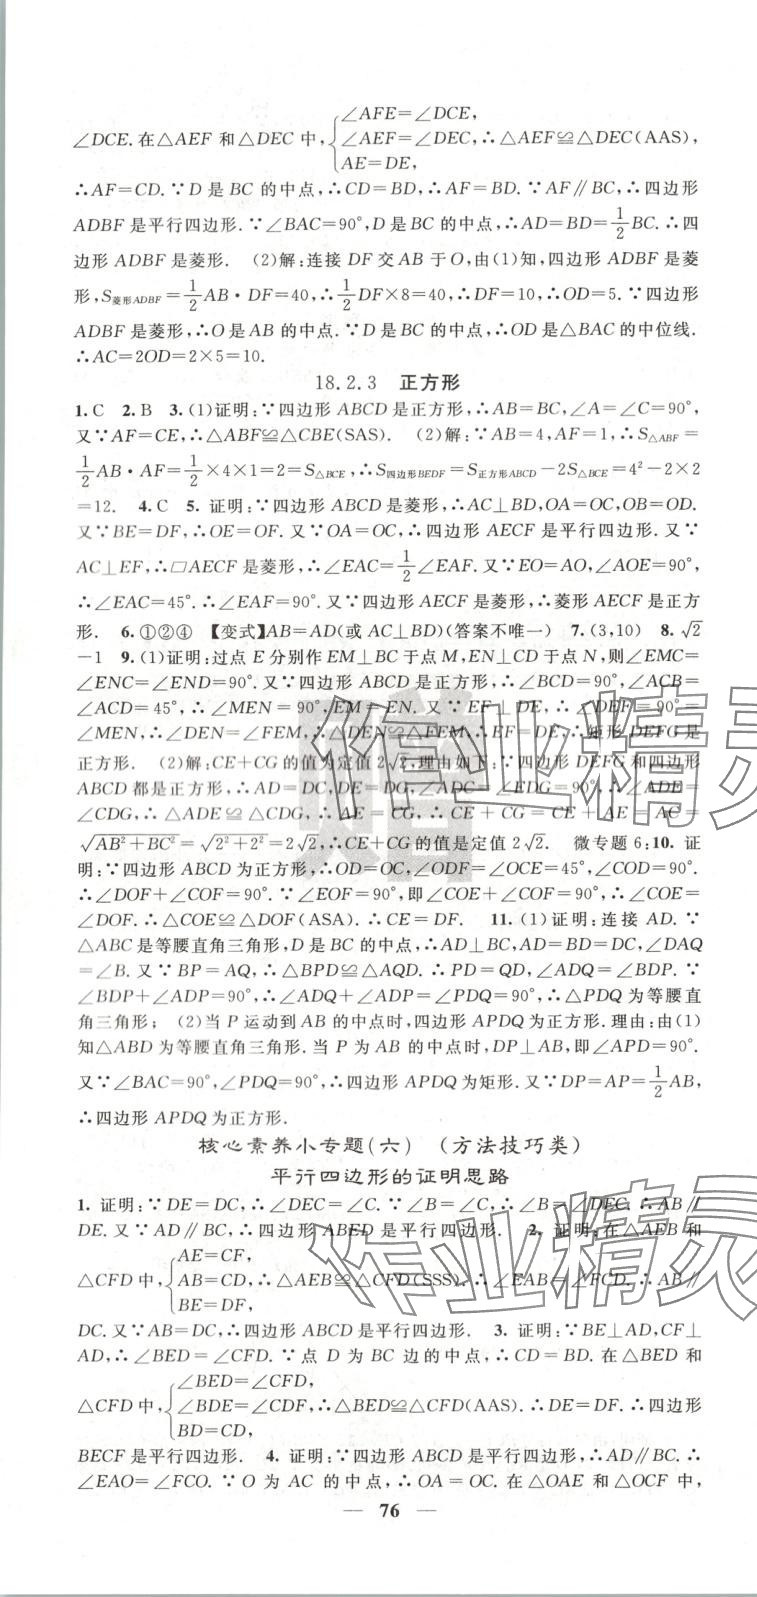 ∠AFE=∠DCE,
∠DCE.在△AEF 和△DEC 中,∠AEF=∠DEC,∴△AEF≌△DEC(AAS),
AE=DE,
∴AF=CD.∵D 是 BC 的中点,∴CD=BD,∴AF=BD.∵AF∥BC,∴四边形
ADBF 是平行四边形.∵∠BAC=90°,D 是 BC 的中点,∴AD=BD=1/2BC.∴四
边形 ADBF 是菱形. (2)解:连接 DF 交 AB 于 O,由(1)知,四边形 ADBF 是菱
形,S菱形ADBF=1/2AB·DF=40,∴1/2DF×8=40,∴DF=10,∴OD=5.∵四边形
ADBF 是菱形,∴O 是 AB 的中点.∵D 是 BC 的中点,∴OD 是△BAC 的中位线.
∴AC=2OD=2×5=10.
18.2.3 正方形
1.C 2.B 3.(1)证明:∵四边形 ABCD 是正方形,∴AB=BC,∠A=∠C=90°,
又∵AF=CE,∴△ABF≌△CBE(SAS). (2)解:∵AB=4,AF=1,∴S△ABF=
1/2AB·AF=1/2×4×1=2=S△BCE,∴S四边形BEDF=S正方形ABCD-2S△BCE=4²-2×2
=12. 4.C 5.证明:∵四边形 ABCD 是菱形,∴AC⊥BD,OA=OC,OB=OD.
又∵BE=DF,∴OE=OF.又∵OA=OC,∴四边形 AECF 是平行四边形.又∵
AC⊥EF,∴□AECF 是菱形,∴∠EAC=1/2∠EAF.又∵EO=AO,∠AOE=90°,
∴∠EAC=45°.∴∠EAF=90°.又∵四边形 AECF 是菱形,∴菱形 AECF 是正方
形. 6.①②④ 【变式】AB=AD(或 AC⊥BD)(答案不唯一) 7.(3,10) 8.√2
-1 9.(1)证明:过点 E 分别作 EM⊥BC 于点 M,EN⊥CD 于点 N,则∠EMC=
∠ENC=∠END=90°.又∵四边形 ABCD 是正方形,∴∠BCD=90°,∠ACB=
∠ACD=45°,∴∠MEN=90°,EM=EN.又∵EF⊥DE,∴∠DEF=90°=
∠MEN,∴∠DEN=∠FEM,∴△DEN≌△FEM,∴EF=DE,∴矩形 DEFG 是
正方形. (2)解:CE+CG 的值为定值 2√2,理由如下:∵四边形 DEFG 和四边形
ABCD 都是正方形,∴AD=DC,DE=DG,∠ADC=∠EDG=90°,∴∠ADE=
∠CDG,∴△ADE≌△CDG,∴AE=CG,∴CE+CG=CE+AE=AC=
√(AB²+BC²)=√(2²+2²)=2√2,∴CE+CG 的值是定值 2√2. 微专题 6:10.证
明:∵四边形 ABCD 为正方形,∴OD=OC,∠ODF=∠OCE=45°,∠COD=90°.
∴∠DOF+∠COF=90°.∵∠EOF=90°,即∠COE+∠COF=90°,∴∠COE=
∠DOF.∴△COE≌△DOF(ASA).∴CE=DF. 11.(1)证明:连接 AD.∵
△ABC 是等腰直角三角形,D 是 BC 的中点,∴AD⊥BC,AD=BD=DC,∠DAQ
=∠B.又∵BP=AQ,∴△BPD≌△AQD.∴PD=QD,∠ADQ=∠BDP.∵
∠BDP+∠ADP=90°,∴∠ADQ+∠ADP=∠PDQ=90°,∴△PDQ 为等腰直
角三角形; (2)当 P 运动到 AB 的中点时,四边形 APDQ 为正方形.理由:由(1)
知△ABD 为等腰直角三角形.当 P 为 AB 的中点时,DP⊥AB,即∠APD=90°.
又∵∠BAC=90°,∠PDQ=90°,∴四边形 APDQ 为矩形.又∵DP=AP=1/2AB,
∴四边形 APDQ 为正方形.
核心素养小专题(六) (方法技巧类)
平行四边形的证明思路
1.证明:∵DE=DC,∴∠DEC=∠C.∵∠B=∠C,∴∠B=∠DEC.∴AB∥
DE.又∵AD∥BC,∴四边形 ABED 是平行四边形. 2.证明:在△AEB 和
AE=CF,
△CFD 中,AB=CD,∴△AEB≌△CFD(SSS).∴∠EAB=∠FCD.∴AB∥
BE=DF,
DC.又∵AB=DC,∴四边形 ABCD 是平行四边形. 3.证明:∵BE⊥AD,CF⊥
AD,∴∠BED=∠CFD.∵点 D 为 BC 边的中点,∴CD=BD.在△BED 和
∠BED=∠CFD,
△CFD 中,∠BDE=∠CDF,∴△BED≌△CFD(AAS).∴DE=DF.∴四边形
BD=CD,
BECF 是平行四边形. 4.证明:∵四边形 ABCD 是平行四边形,∴AD∥BC.∴
∠EAO=∠FCO.∵O 为 AC 的中点,∴OA=OC.在△OAE 和△OCF 中,
— 76 —
赠
作业精灵
作业精灵